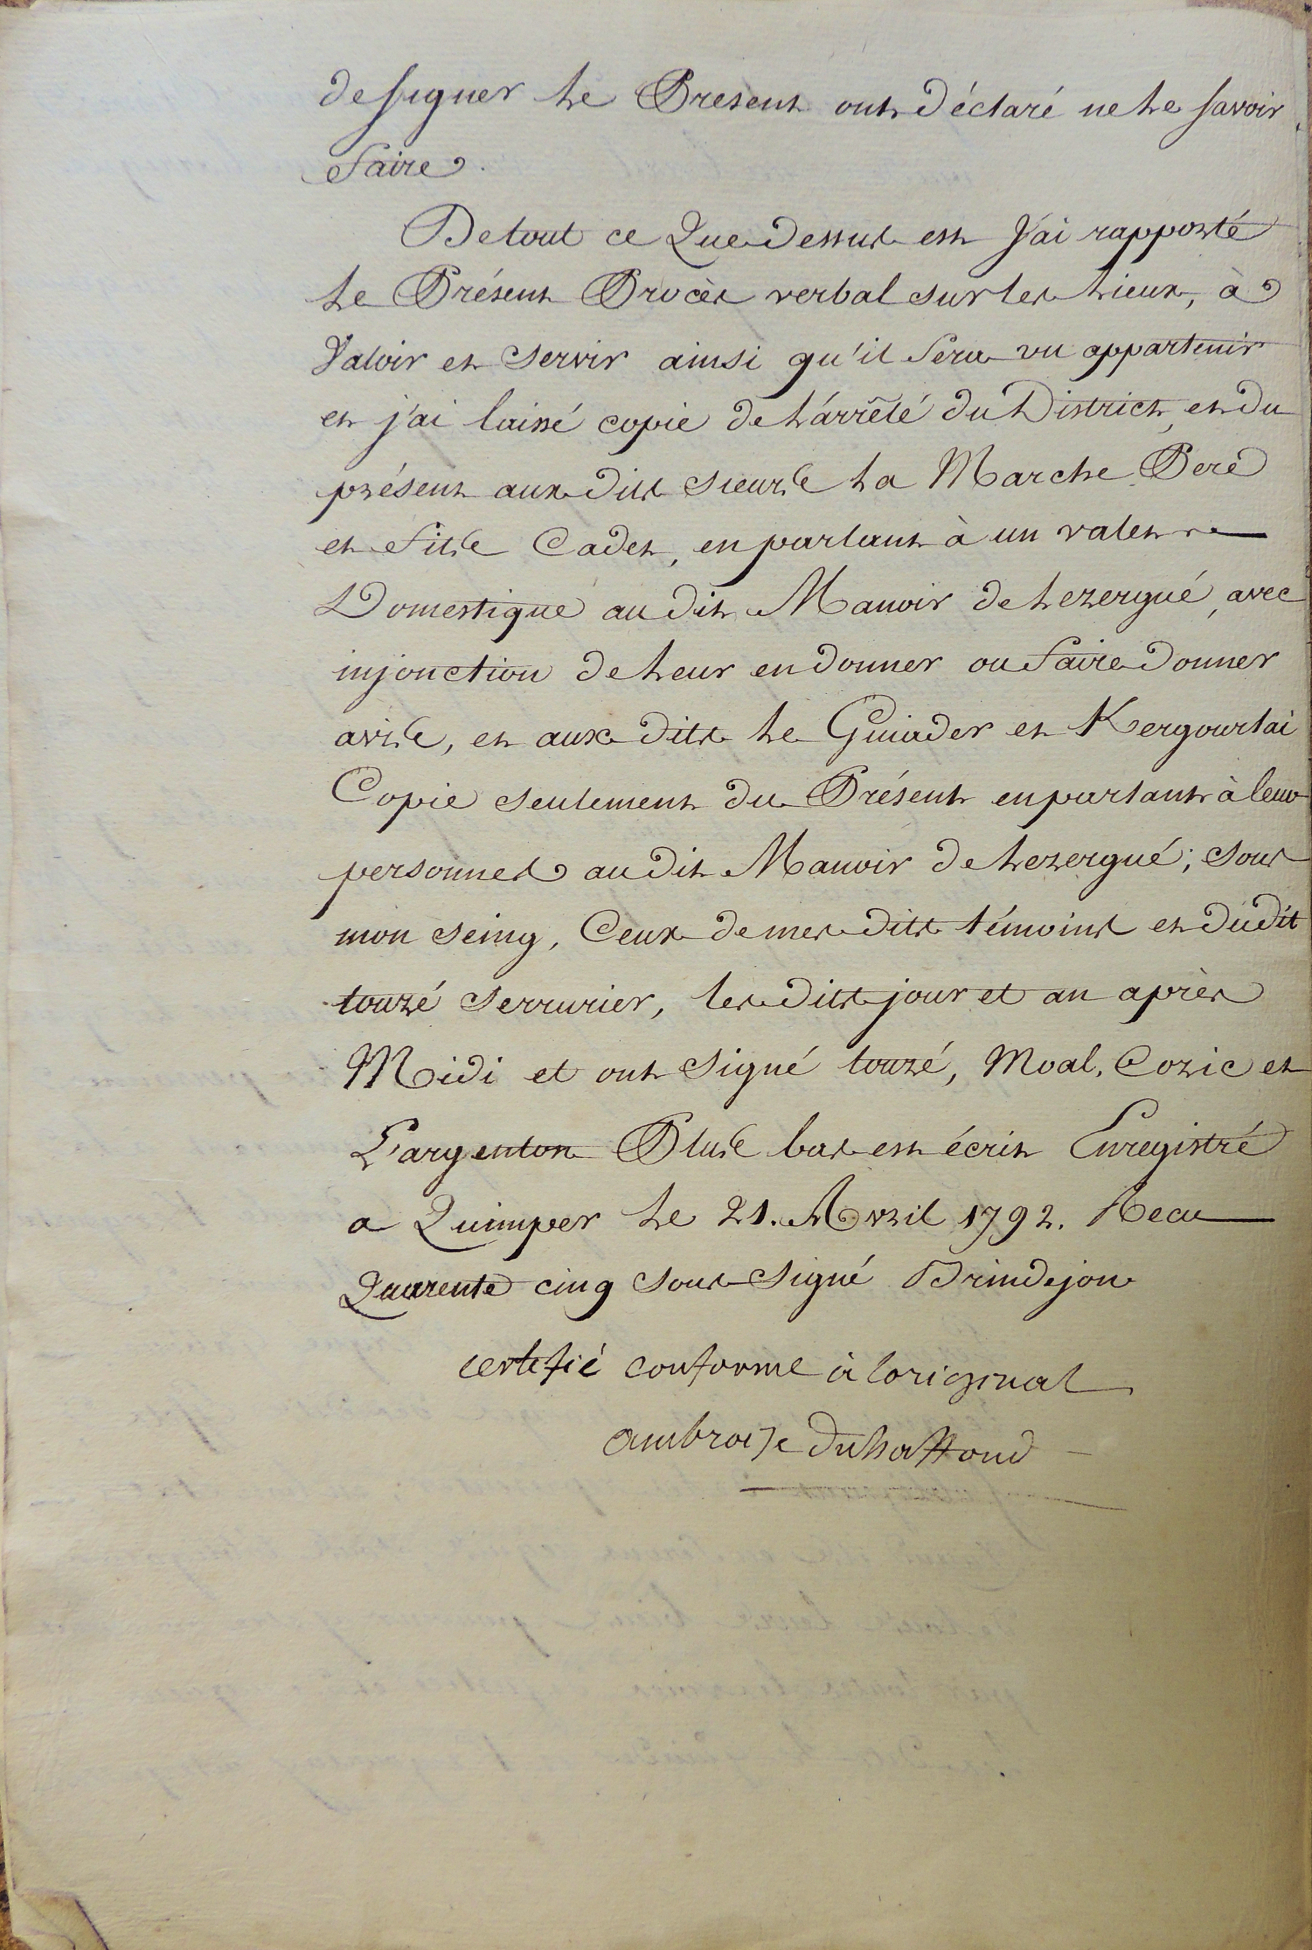 de signer le Present ont déclaré ne le savoir
faire.
De tout ce Que dessus est J'ai rapporté
le Présent Procès verbal sur les lieux, à
Valoir et servir ainsi qu'il sera vu appartenir
et j'ai laissé copie de l'arrêté du District, et du
présent aux dits sieurs la Marche Pere
et fils Cadet, en parlant à un valet
Domestique au dit Manoir de Lezergué, avec
injonction de leur en donner ou faire donner
avis, et aux dits le Guiader et Kergourlai
Copie seulement du Présent en parlant à leur
personnes au dit Manoir de Lezergué; sous
mon seing, Ceux de mes dits témoins et dudit
touzé serrurier, les dits jour et an après
Midi et ont signé touzé, Moal, Cozic et
L'argenton Plus bas est écrit Enregistré
a Quimper le 21. Avril 1792. Recu
Quarente cinq sous signé Brindejon
certifié conforme à loriginal
ambroise Duhaffond